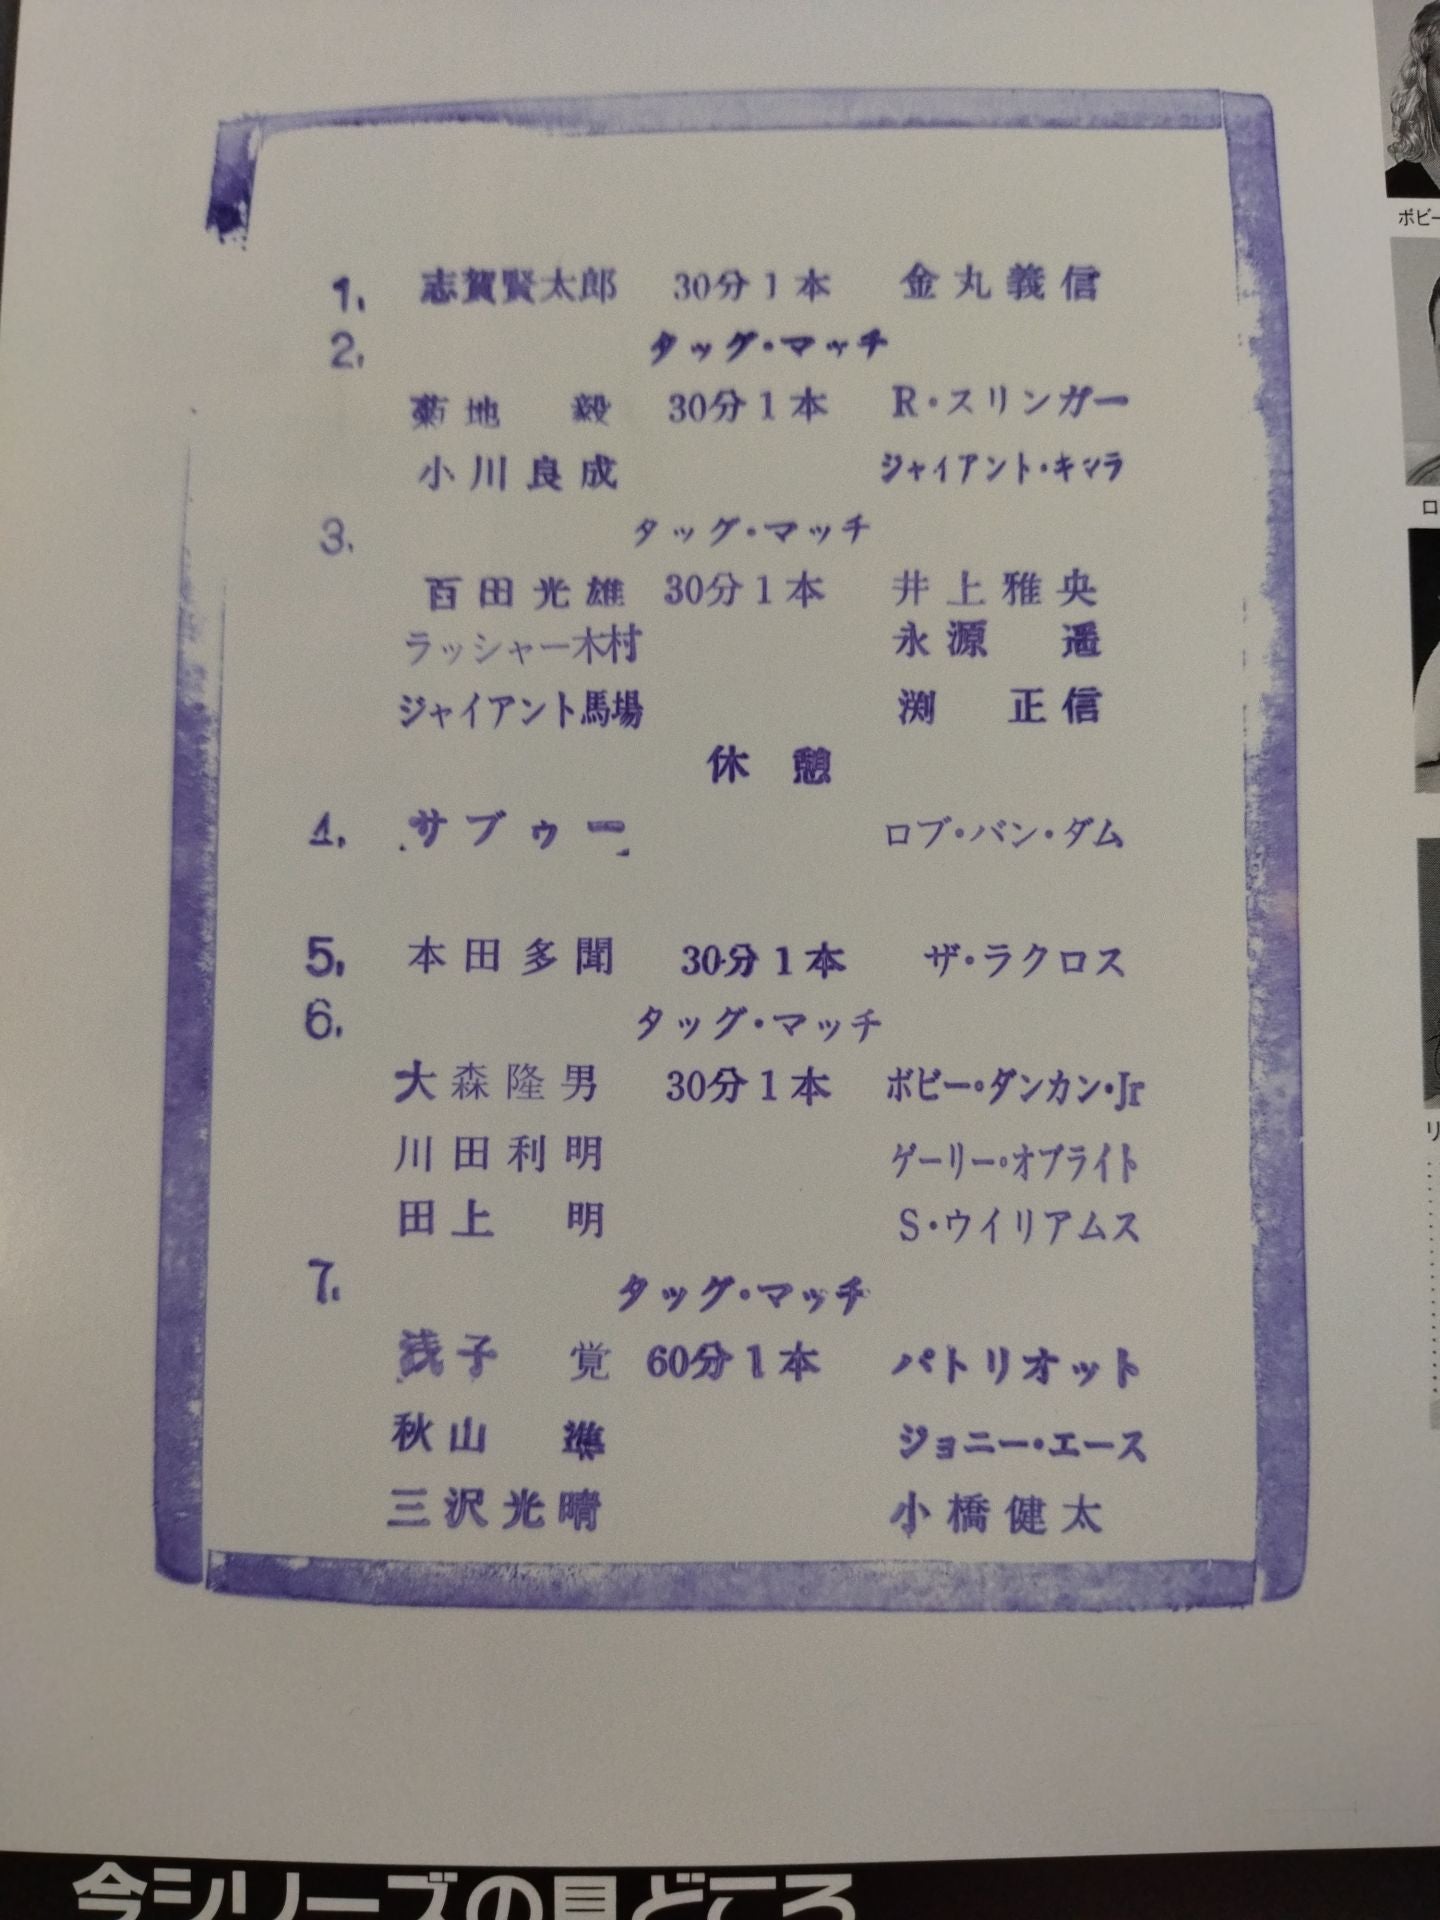 1. 志賀賢太郎 30分1本 金丸義信
2. タッグ・マッチ
菊地 毅 30分1本 R・スリンガー
小川良成 ジャイアント・キマラ
3. タッグ・マッチ
百田光雄 30分1本 井上雅央
ラッシャー木村 永源 遥
ジャイアント馬場 渕 正信
休 憩
4. サブゥー ロブ・バン・ダム
5. 本田多聞 30分1本 ザ・ラクロス
6. タッグ・マッチ
大森隆男 30分1本 ボビー・ダンカン・Jr
川田利明 ゲーリー・オブライト
田上 明 S・ウイリアムス
7. タッグ・マッチ
浅子 覚 60分1本 パトリオット
秋山 準 ジョニー・エース
三沢光晴 小橋健太
今シリーズの見どころ
ボビー
ロ
リ